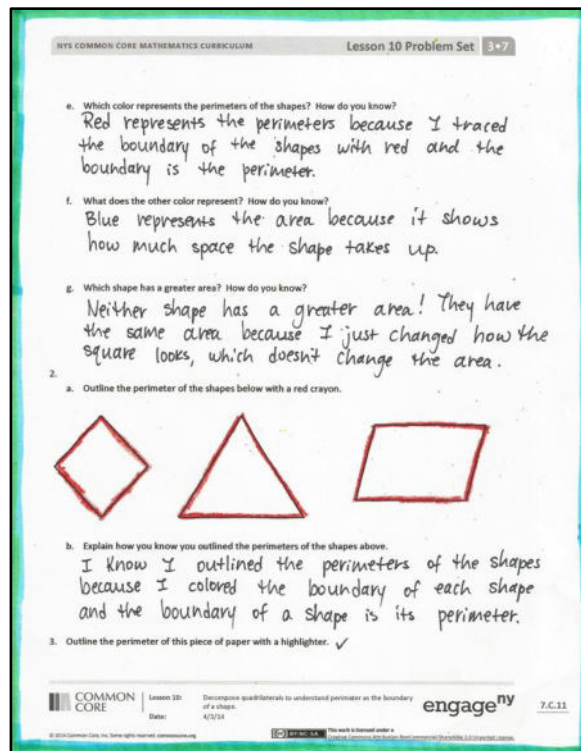 NYS COMMON CORE MATHEMATICS CURRICULUM
Lesson 10 Problem Set
3•7
e. Which color represents the perimeters of the shapes? How do you know?
Red represents the perimeters because I traced
the boundary of the shapes with red and the
boundary is the perimeter.
f. What does the other color represent? How do you know?
Blue represents the area because it shows
how much space the shape takes up.
g. Which shape has a greater area? How do you know?
Neither shape has a greater area! They have
the same area because I just changed how the
square looks, which doesn't change the area.
2.
a. Outline the perimeter of the shapes below with a red crayon.
b. Explain how you know you outlined the perimeters of the shapes above.
I know I outlined the perimeters of the shapes
because I colored the boundary of each shape
and the boundary of a shape is its perimeter.
3. Outline the perimeter of this piece of paper with a highlighter. ✓
COMMON
CORE
Lesson 10:
Decompose quadrilaterals to understand perimeter as the boundary
of a shape.
Date:
4/3/14
engageny
7.C.11
© 2014 Common Core, Inc. Some rights reserved. commoncore.org
CC BY-NC-SA
This work is licensed under a
Creative Commons Attribution-NonCommercial-ShareAlike 3.0 Unported License.